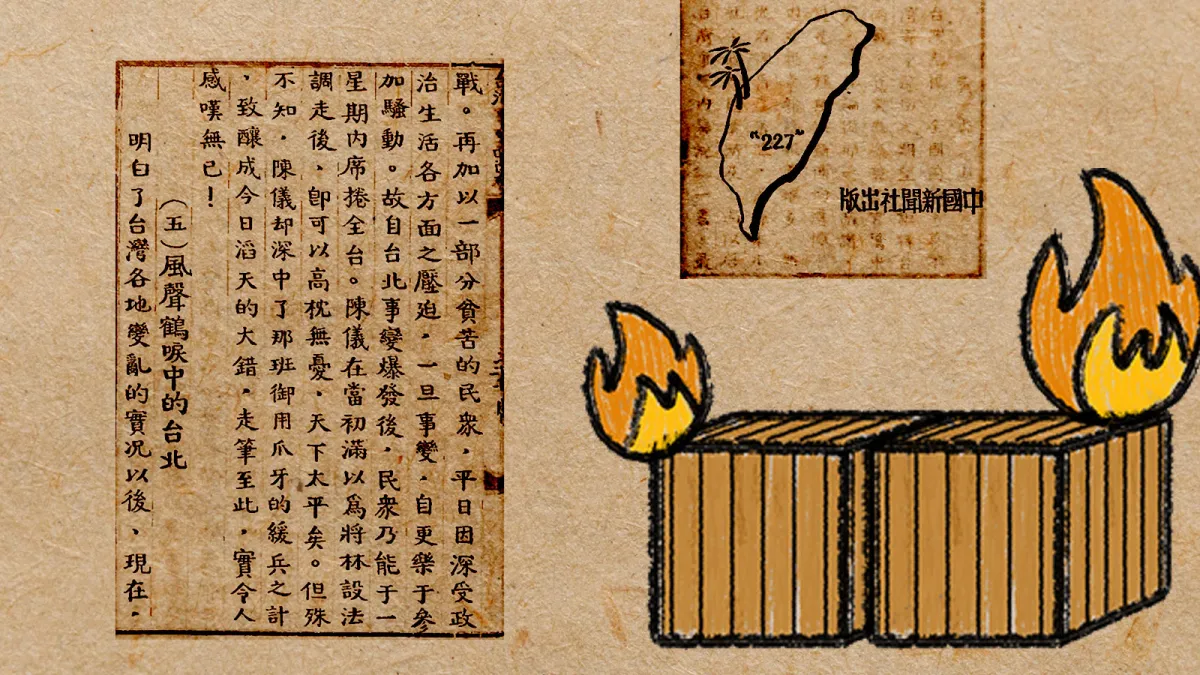 戰。再加以一部分貧苦的民衆，平日因深受政
治生活各方面之壓迫，一旦事變，自更樂于參
加騷動。故自台北事變爆發後，民衆乃能于一
星期內席捲全台。陳儀在當初滿以爲將林設法
調走後、卽可以高枕無憂，天下太平矣。但殊
不知，陳儀却深中了那班御用爪牙的緩兵之計
，致釀成今日滔天的大錯，走筆至此，實令人
感嘆無已！
（五）風聲鶴唳中的台北
明白了台灣各地變亂的實況以後、現在，
“227”
中國新聞社出版